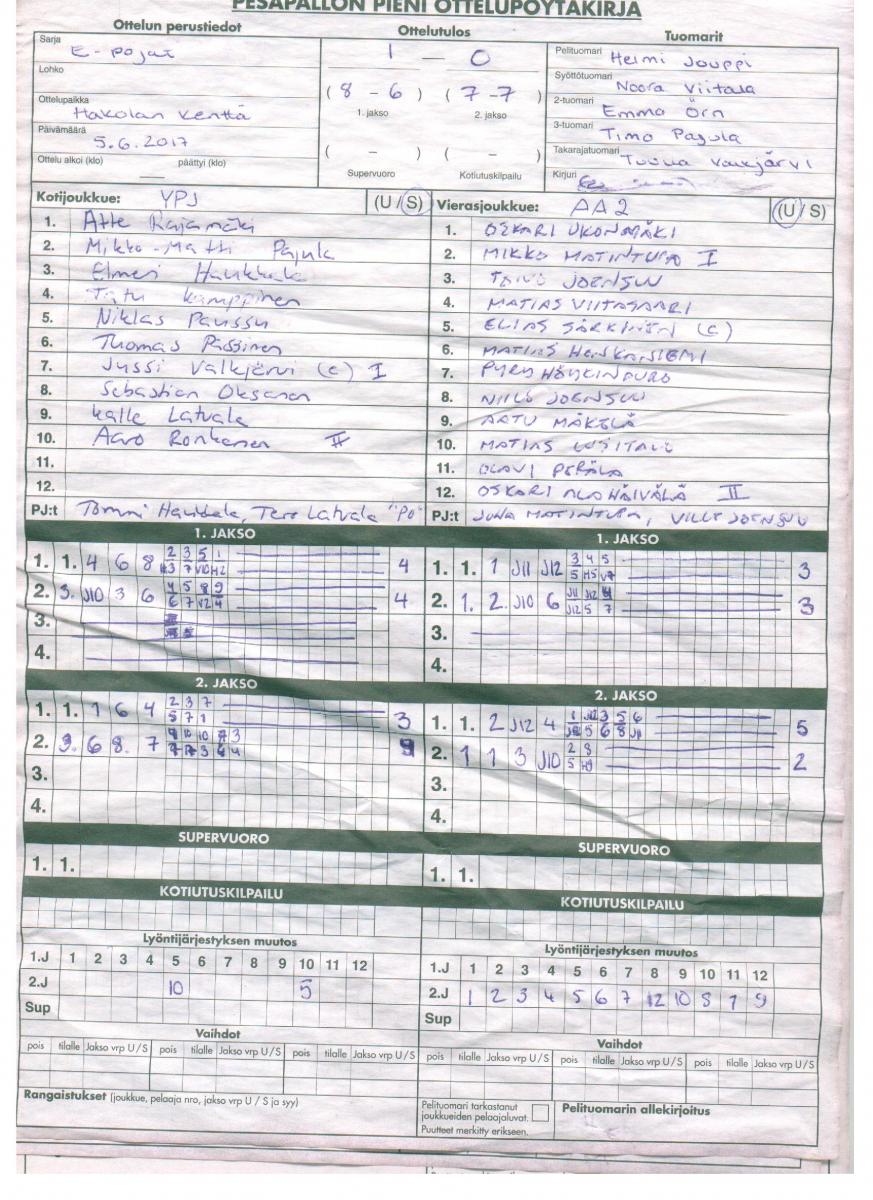 PESÄPALLON PIENI OTTELUPÖYTÄKIRJA
Ottelun perustiedot
Sarja
E-pojat
Lohko
Ottelupaikka
Hakolan kenttä
Päivämäärä
5.6.2017
Ottelu alkoi (klo) päättyi (klo)
Ottelutulos
1 — 0
(8 - 6) (7 - 7)
1. jakso 2. jakso
( - ) ( - )
Supervuoro Kotiutuskilpailu
Tuomarit
Pelituomari Helmi Jouppi
Syöttötuomari Noora Viitala
2-tuomari Emma Örn
3-tuomari Timo Pajula
Takarajatuomari Tuulia Valkjärvi
Kirjuri
Kotijoukkue: YPJ (U / S)
1. Atte Rajamäki
2. Mikko-Matti Pajula
3. Elmeri Haukkala
4. Tatu Kamppinen
5. Niklas Paussu
6. Thomas Pässinen
7. Jussi Valkjärvi (c) I
8. Sebastian Oksanen
9. Kalle Latvala
10. Aaro Ronkanen II
11.
12.
PJ:t Tommi Haukkala, Tero Latvala "PO"
Vierasjoukkue: AA2 (U / S)
1. OSKARI UKONMÄKI
2. MIKKO MATINTUPA I
3. TOIVO JOENSUU
4. MATIAS VIITASAARI
5. ELIAS SÄRKINEN (C)
6. MATIAS HEISKANIEMI
7. PYRY HÖYKINPURO
8. NIILO JOENSUU
9. AATU MÄKELÄ
10. MATIAS LUSITALO
11. OLAVI PERÄLÄ
12. OSKARI ALA HÄIVÄLÄ II
PJ:t JUHA MATINTUPA, VILLE JOENSUU
1. JAKSO
1. 1. 4 6 8 2 3 5 1 4
H3 7 V10 H2
2. 9. J10 3 6 4 5 8 9 4
6 7 V2 4
3.
4.
1. JAKSO
1. 1. 1 J11 J12 3 4 5 3
5 H5 V7
2. 1. 2. J10 6 J11 J12 4 3
J12 5 7
3.
4.
2. JAKSO
1. 1. 1 6 4 2 3 7 3
5 7 1
2. 9. 6 8. 7
3.
4.
2. JAKSO
1. 1. 2 J12 4 5
2. 1 1 3 J10 2 8 2
5 H9
3.
4.
SUPERVUORO
1. 1.
SUPERVUORO
1. 1.
KOTIUTUSKILPAILU
KOTIUTUSKILPAILU
Lyöntijärjestyksen muutos
1.J 1 2 3 4 5 6 7 8 9 10 11 12
2.J 10 5
Sup
Lyöntijärjestyksen muutos
1.J 1 2 3 4 5 6 7 8 9 10 11 12
2.J 1 2 3 4 5 6 7 12 10 8 1 9
Sup
Vaihdot
pois tilalle Jakso vrp U / S pois tilalle Jakso vrp U / S pois tilalle Jakso vrp U / S
Vaihdot
pois tilalle Jakso vrp U / S pois tilalle Jakso vrp U / S pois tilalle Jakso vrp U / S
Rangaistukset (joukkue, pelaaja nro, jakso vrp U / S ja syy)
Pelituomari tarkastanut
joukkueiden pelaajaluvat.
Puutteet merkitty erikseen.
Pelituomarin allekirjoitus